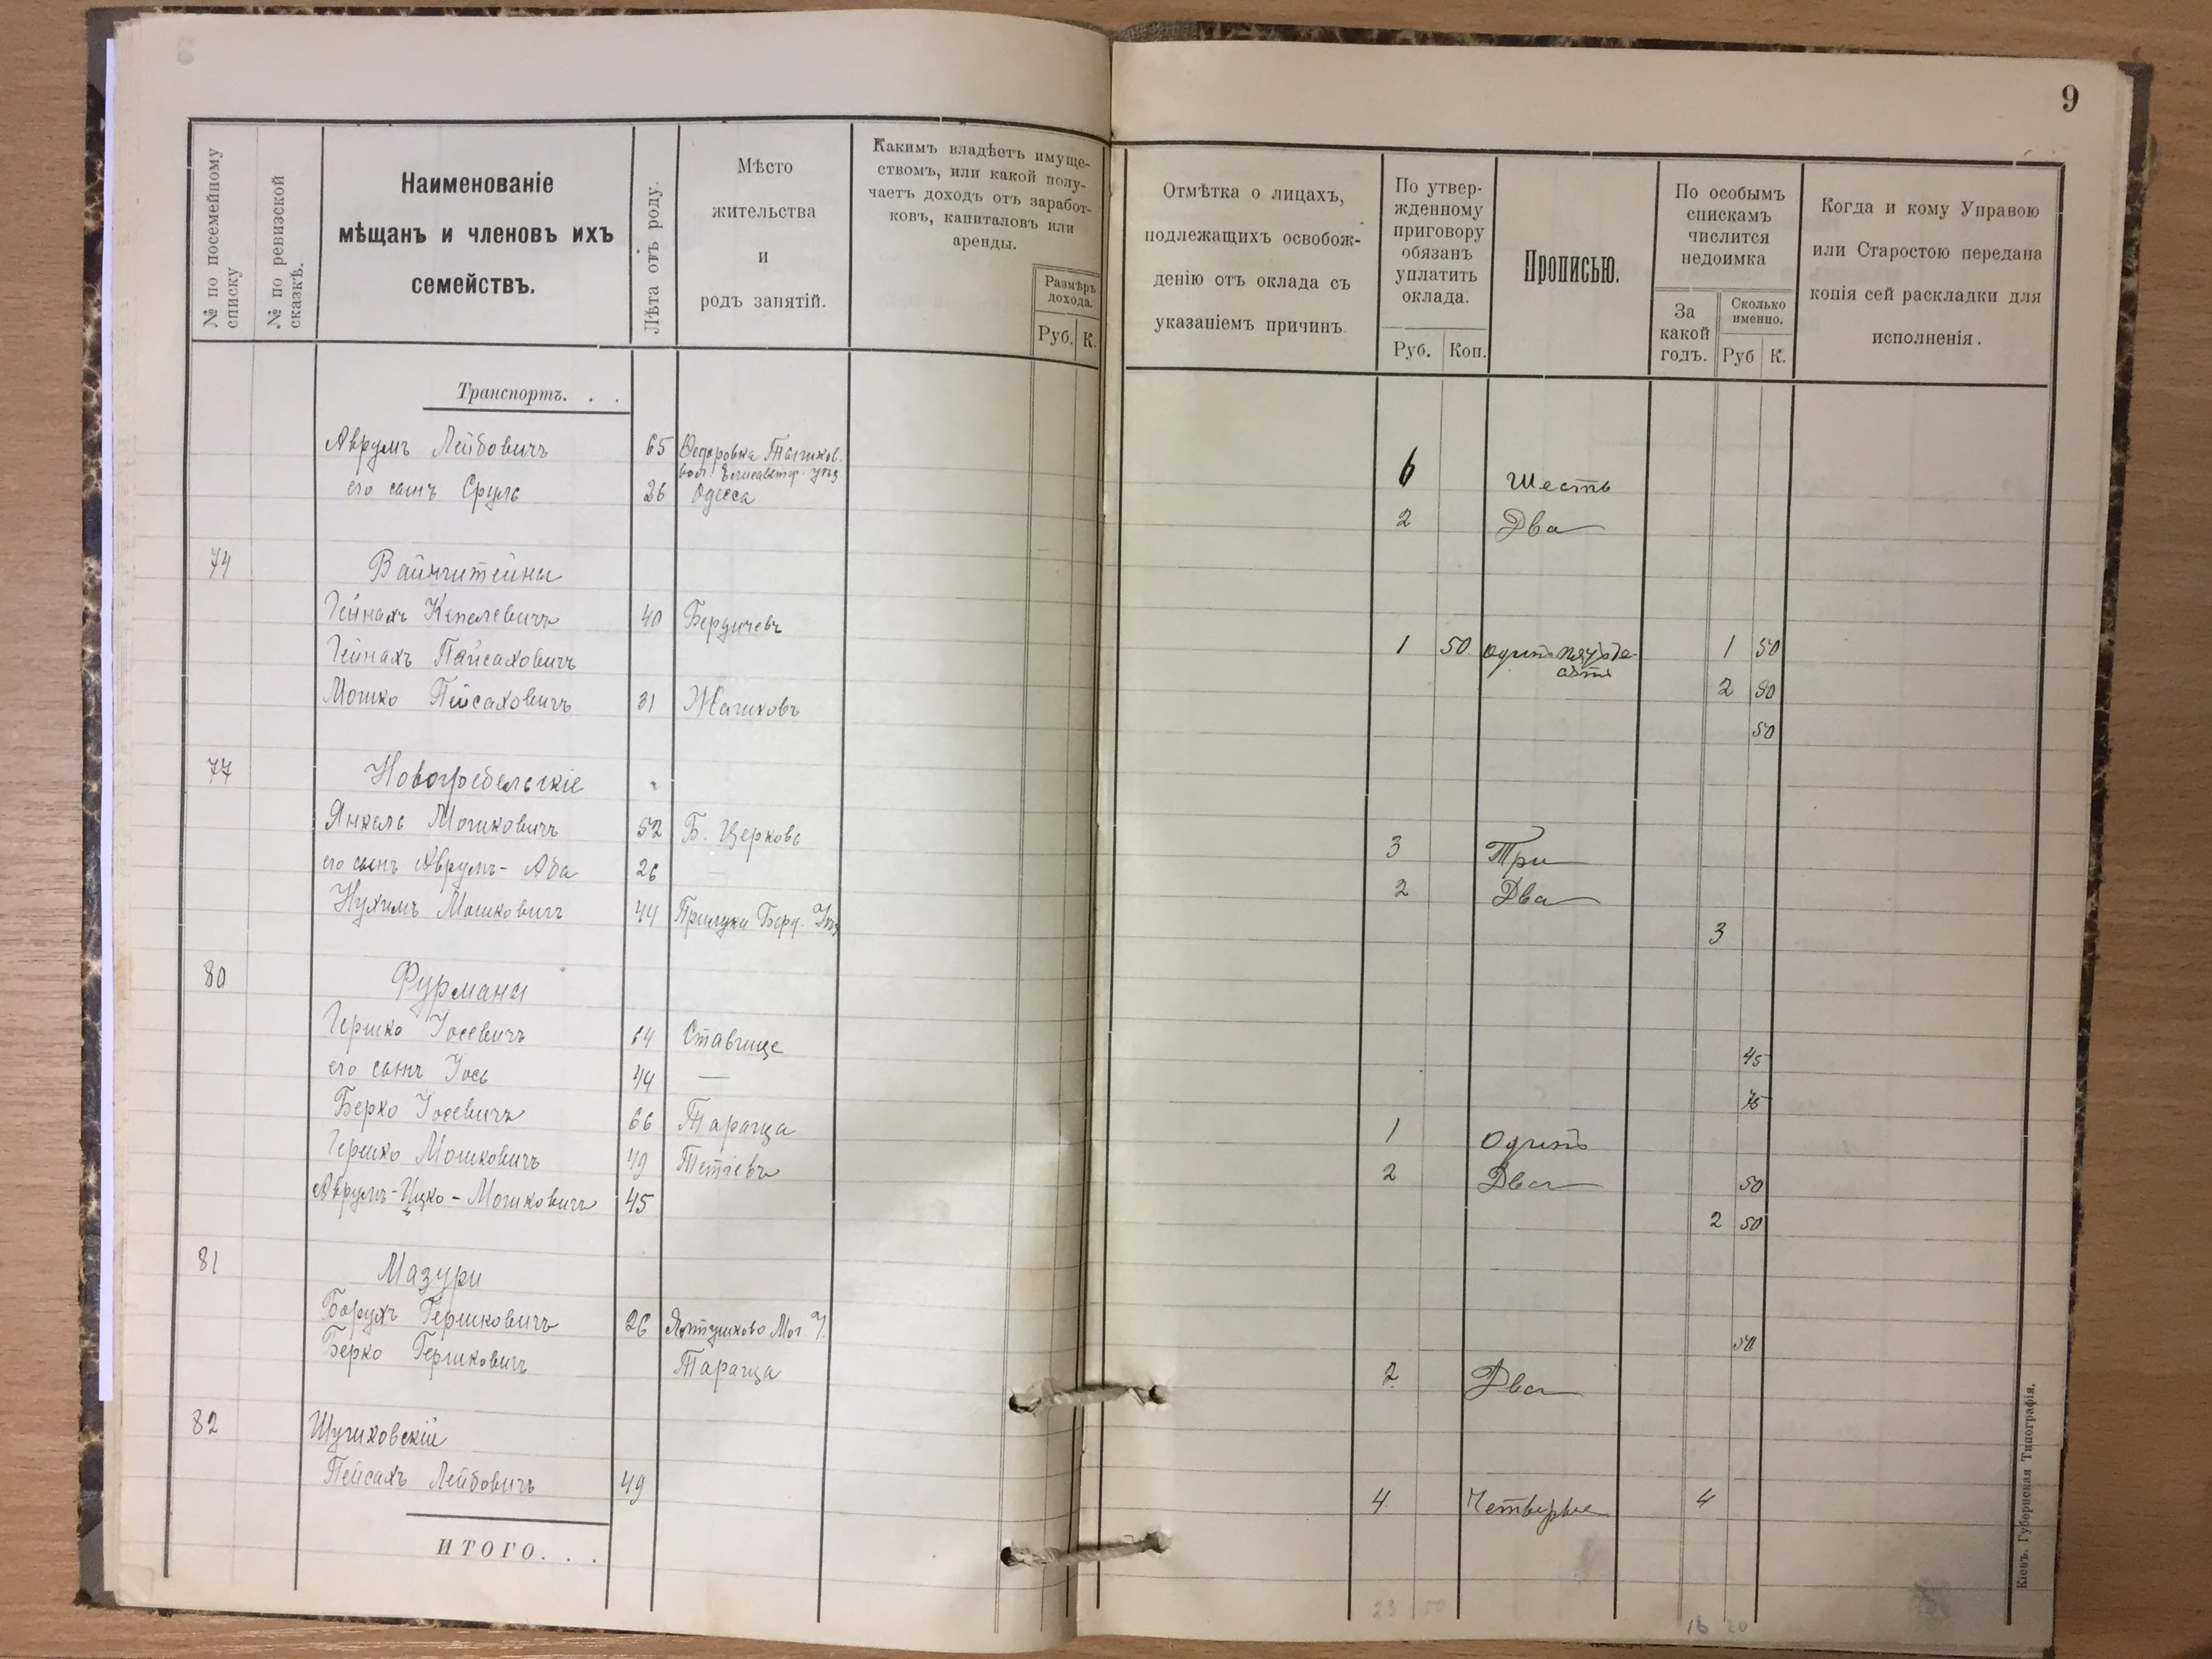 9
№ по посемейному списку
№ по ревизской сказкѣ.
Наименованіе
мѣщанъ и членовъ ихъ
семействъ.
Лѣта отъ роду.
Мѣсто
жительства
и
родъ занятій.
Какимъ владѣетъ имуще-
ствомъ, или какой полу-
чаетъ доходъ отъ заработ-
ковъ, капиталовъ или
аренды.
Размѣръ
дохода.
Руб. К.
Отмѣтка о лицахъ,
подлежащихъ освобож-
денію отъ оклада съ
указаніемъ причинъ.
По утвер-
жденному
приговору
обязанъ
уплатить
оклада.
Руб. Коп.
Прописью.
По особымъ
спискамъ
числится
недоимка
За
какой
годъ.
Сколько
именно.
Руб К.
Когда и кому Управою
или Старостою передана
копія сей раскладки для
исполненія.
Транспортъ. . .
Аврумъ Лейбовичъ 65 Федоровка вол. Елисаветгр. уѣз 6 Шесть
его сынъ Сруль 26 Одесса 2 Два
74 Вайнштейны
Гейнахъ Кепелевичъ 40 Бердичевъ 1 50 Одинъ пятьде- 1 50
сятъ
Гейнахъ Пейсаховичъ 2 50
Мошко Пейсаховичъ 31 Жашковъ 50
77 Новогребельскіе
Янкель Мошковичъ 52 Б. Церковь 3 Три
его сынъ Аврумъ-Аба 26 — 2 Два
Нухимъ Мошковичъ 44 Прилуки Берд. Уѣз 3
80 Фурманы
Гершко Іосевичъ 64 Ставище 45
его сынъ Іось 44 — 75
Берко Іосевичъ 66 Тараща 1 Одинъ
Гершко Мошковичъ 49 Тетіевъ 2 Два 50
Аврумъ-Ицко-Мошковичъ 45 2 50
81 Мазури
Борухъ Гершковичъ 26 Ялтушково Мог У. 50
Берко Гершковичъ Тараща 2 Два
82 Шушковскій
Пейсахъ Лейбовичъ 49 4 Четыре 4
ИТОГО. . .
23 50 16 20
Кіевъ. Губернская Типографія.